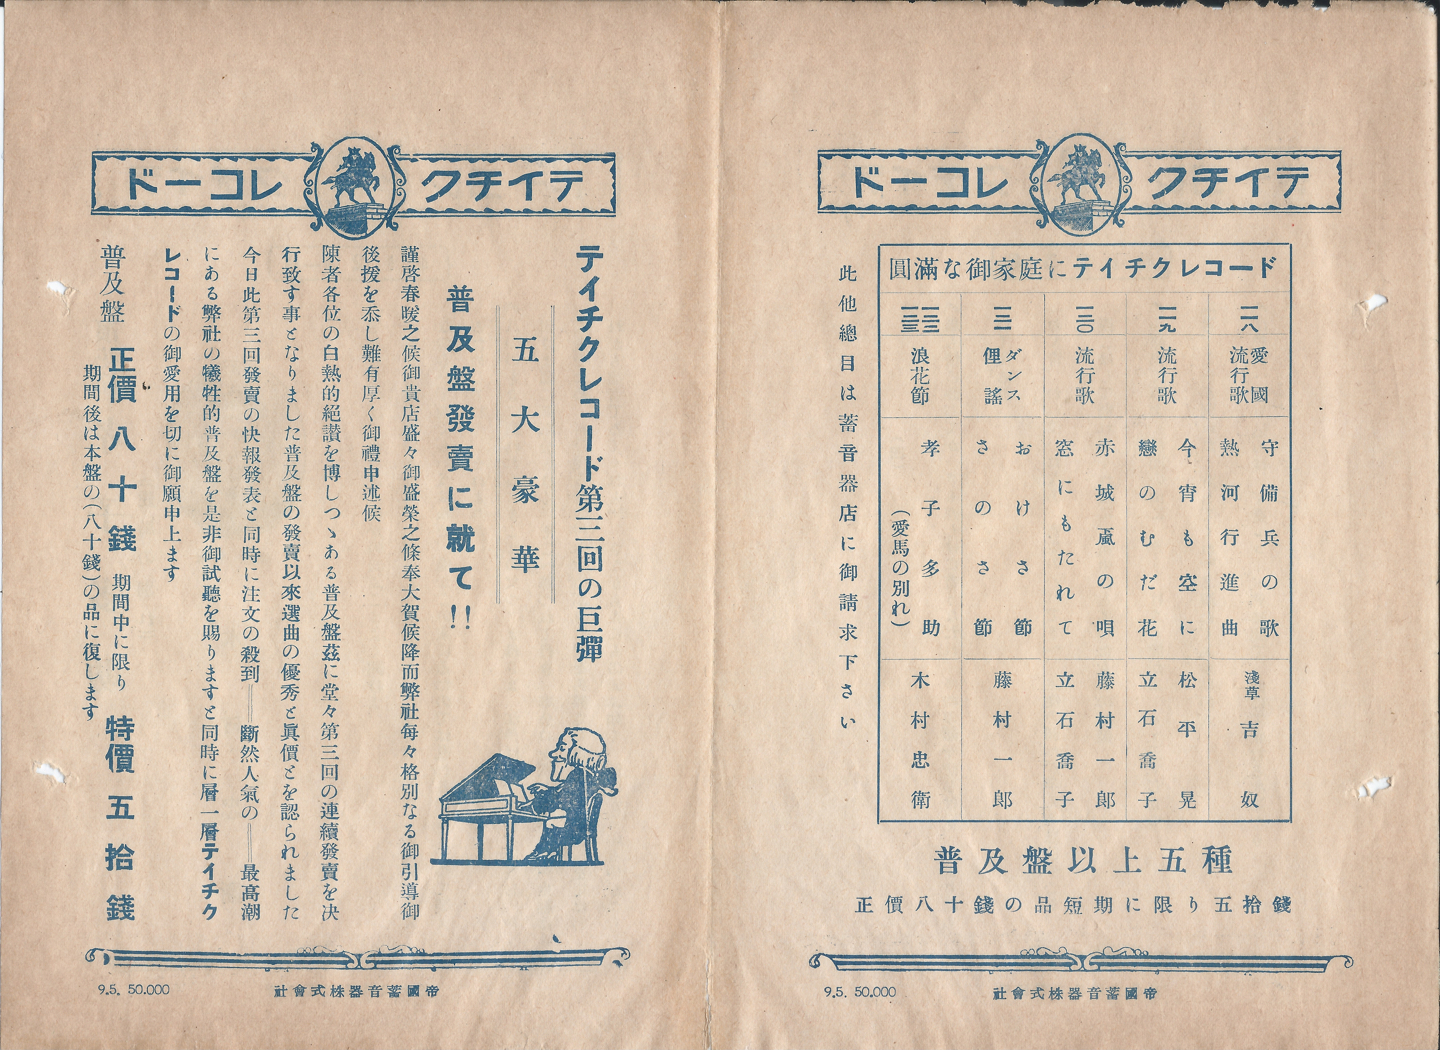 テイチクレコード
圓滿な御家庭にテイチクレコード
一一八
愛國
流行歌
守備兵の歌
熱河行進曲
淺草
吉奴
一一九
流行歌
今宵も空に
戀のむだ花
松平晃
立石喬子
一二〇
流行歌
赤城颪の唄
窓にもたれて
藤村一郎
立石喬子
一二一
ダンス
俚謠
おけさ節
さのさ節
藤村一郎
一二二
一二三
浪花節
孝子多助
(愛馬の別れ)
木村忠衛
此他總目は蓄音器店に御請求下さい
普及盤以上五種
正價八十錢の品短期に限り五拾錢
帝國蓄音器株式會社
9.5. 50.000
テイチクレコード
テイチクレコード第三回の巨彈
五大豪華
普及盤發賣に就て!!
謹啓春暖之候御貴店盛々御盛榮之條奉大賀候降而弊社每々格別なる御引導御
後援を忝し難有厚く御禮申述候
陳者各位の白熱的絕讃を博しつゝある普及盤茲に堂々第三回の連續發賣を決
行致す事となりました普及盤の發賣以來選曲の優秀と眞價とを認られました
今日此第三回發賣の快報發表と同時に注文の殺到══斷然人氣の══最高潮
にある弊社の犧牲的普及盤を是非御試聽を賜りますと同時に層一層テイチク
レコードの御愛用を切に御願申上ます
普及盤 正價八十錢 期間中に限り 特價五拾錢
期間後は本盤の(八十錢)の品に復します
帝國蓄音器株式會社
9.5. 50.000